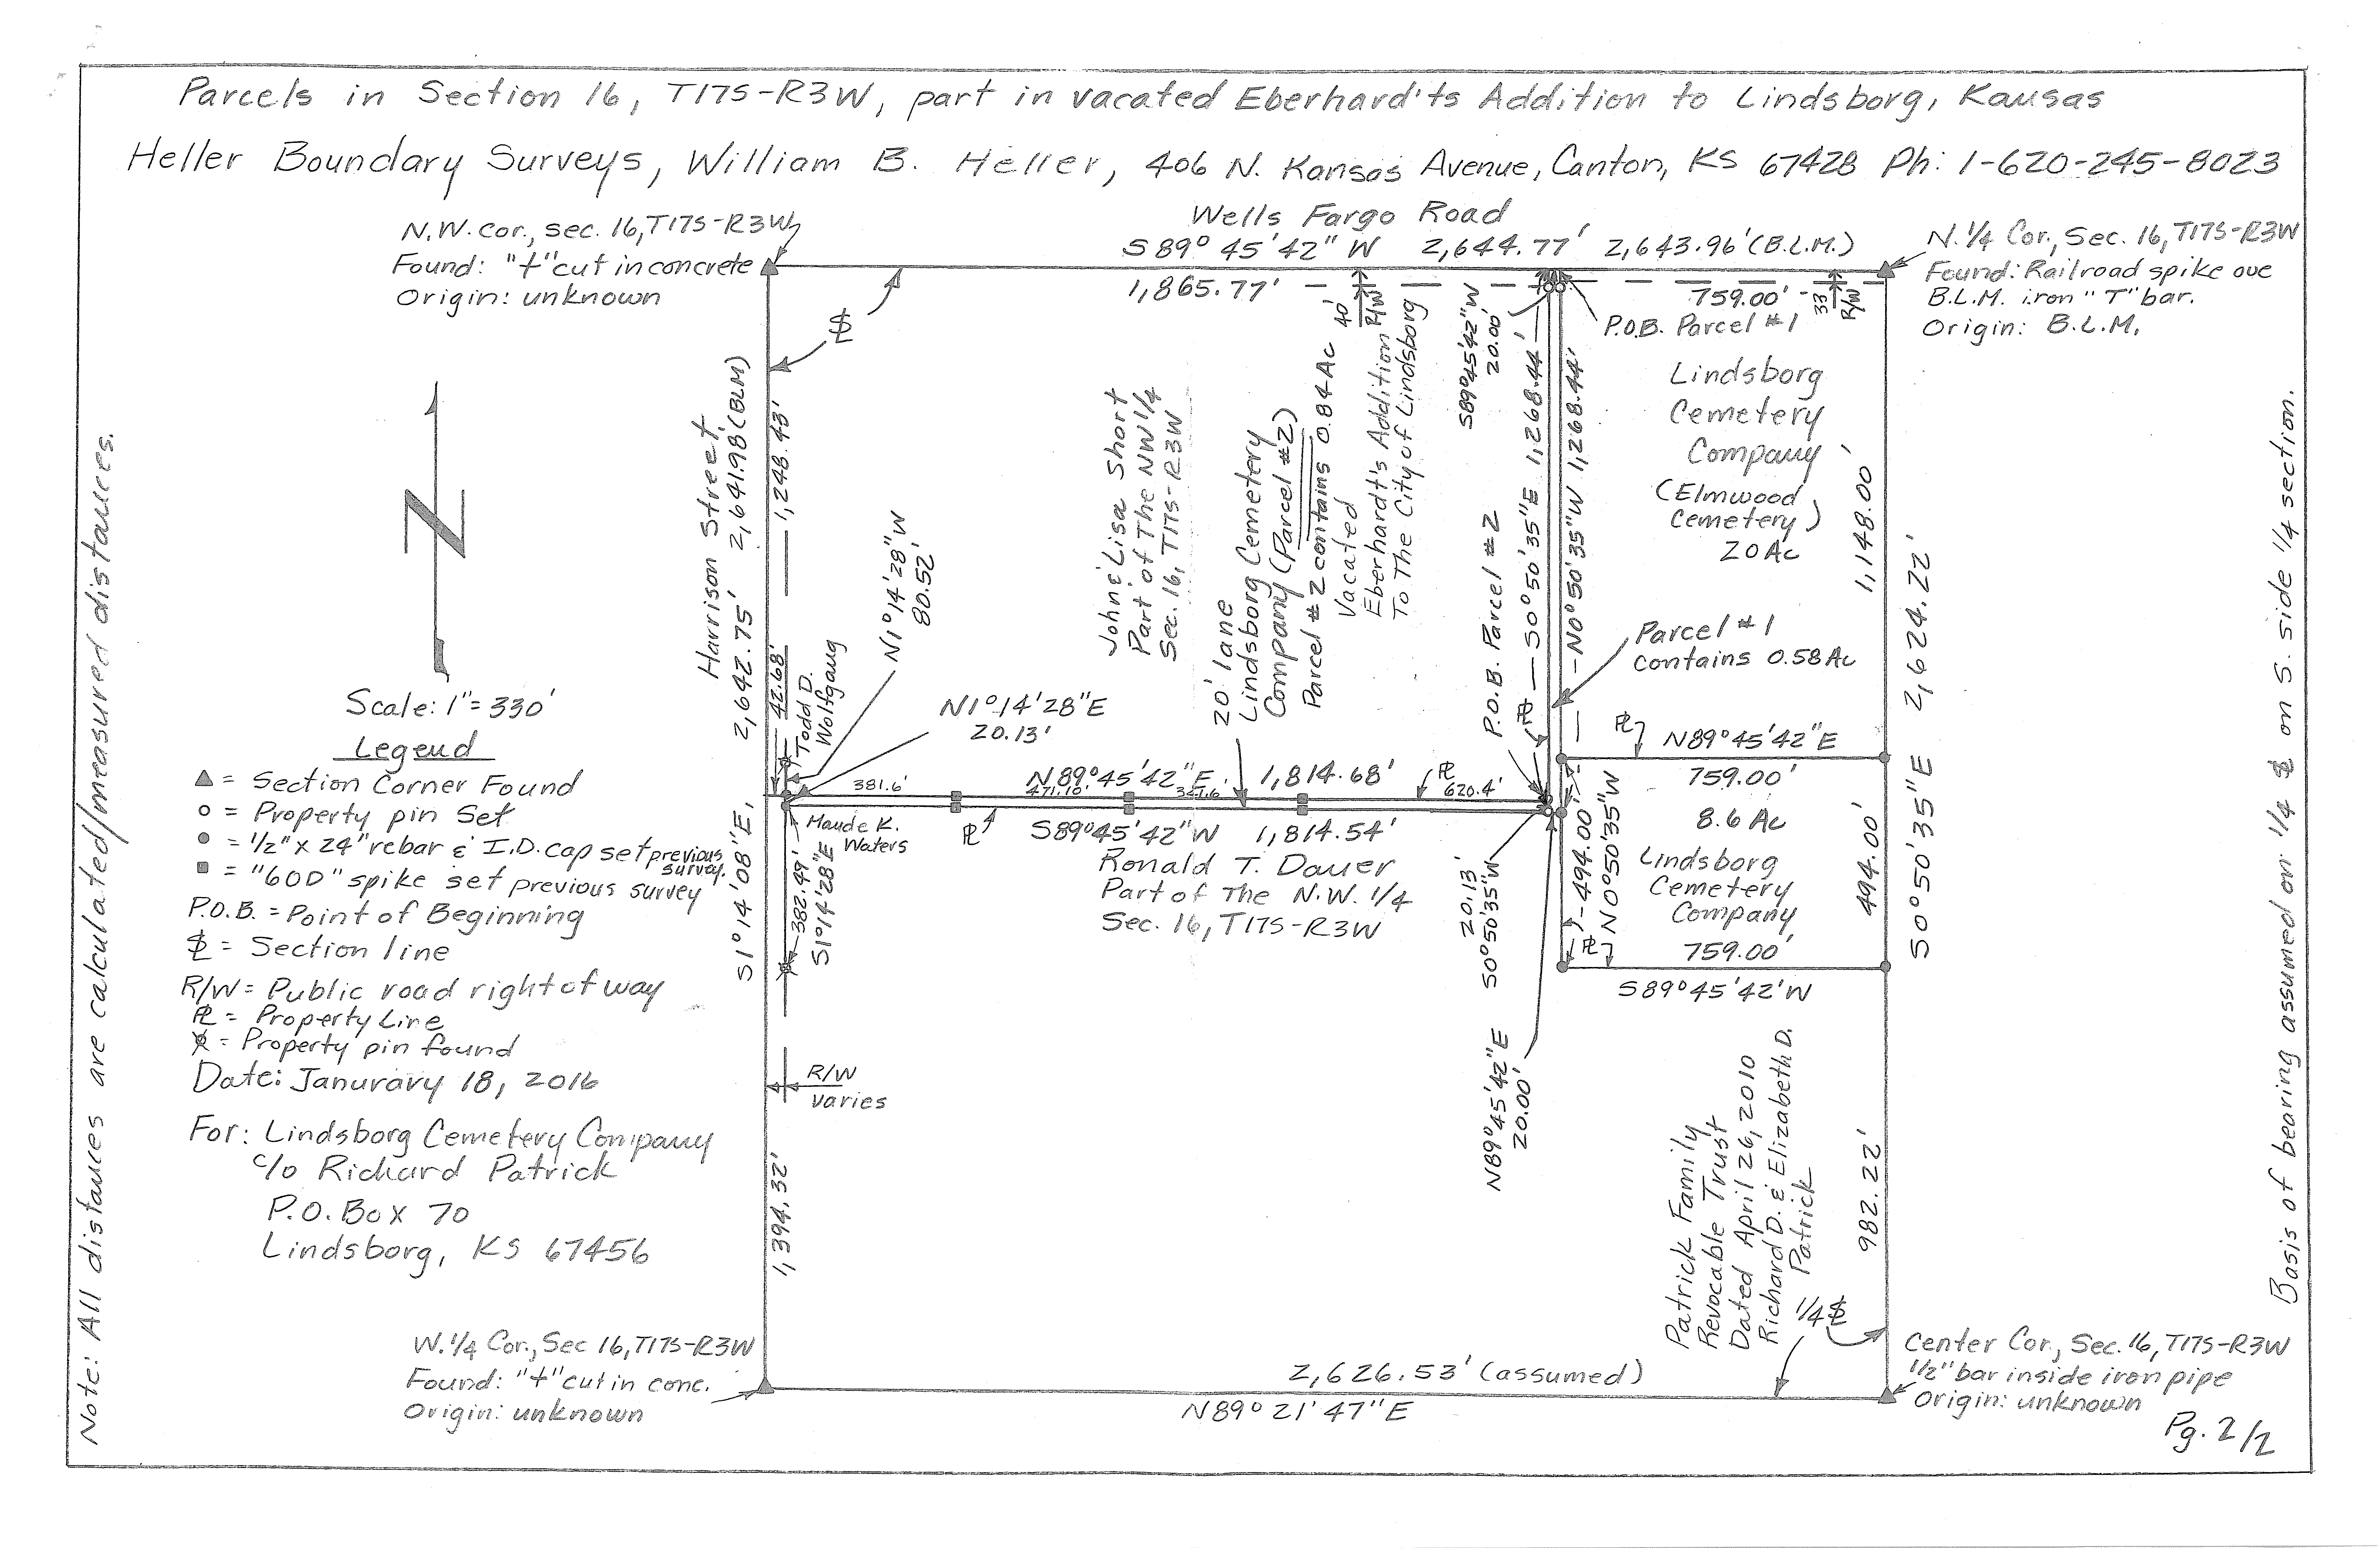 Parcels in Section 16, T17S-R3W, part in vacated Eberhard'ts Addition to Lindsborg, Kansas
Heller Boundary Surveys, William B. Heller, 406 N. Kansas Avenue, Canton, KS 67428 Ph: 1-620-245-8023
N.W. cor., sec. 16, T17S-R3W
Found: "+" cut in concrete
Origin: unknown
Wells Fargo Road
S89° 45' 42" W 2,644.77' 2,643.96' (B.L.M.)
1,865.77'
759.00'
40'
R/W
33'
R/W
N. 1/4 Cor., Sec. 16, T17S-R3W
Found: Railroad spike ove
B.L.M. iron "T" bar.
Origin: B.L.M.
P.O.B. Parcel #1
Lindsborg
Cemetery
Company
(Elmwood
Cemetery)
20 Ac
1,148.00'
S0° 50' 35" E 2,624.22'
Parcel #1
contains 0.58 Ac
S89°45'42"W
20.00'
S0° 50' 35" E 1,268.44'
N0° 50' 35" W 1,268.44'
P.O.B. Parcel #2
Vacated
Eberhardt's Addition
To The City of Lindsborg
20' lane
Lindsborg Cemetery
Company (Parcel #2)
Parcel #2 contains 0.84 Ac
John & Lisa Short
Part of The NW 1/4
Sec. 16, T17S-R3W
Harrison Street
2,642.75' 2,641.98 (BLM)
S1° 14' 08" E,
1,248.43'
42.68'
Todd D.
Wolfgang
N1°14'28"W
80.52'
N1°14'28"E
20.13'
381.6'
N89°45'42"E 1,814.68'
620.4'
S89°45'42"W 1,814.54'
Ronald T. Dauer
Part of The N.W. 1/4
Sec. 16, T17S-R3W
Maude K.
Waters
382.49'
S1°14'28"E
R/W
varies
1,394.32'
N89°45'42"E
759.00'
8.6 Ac
Lindsborg
Cemetery
Company
759.00'
S89°45'42'W
494.00'
N0°50'35"W
494.00'
20.13'
S0°50'35"W
N89°45'42"E
20.00'
982.22'
Patrick Family
Revocable Trust
Dated April 26, 2010
Richard D. & Elizabeth D.
Patrick
1/4 SL
Center Cor., Sec. 16, T17S-R3W
1/2" bar inside iron pipe
Origin: unknown
W. 1/4 Cor., Sec 16, T17S-R3W
Found: "+" cut in conc.
Origin: unknown
2,626.53' (assumed)
N89° 21' 47" E
N
Scale: 1" = 330'
Legend
= Section Corner Found
= Property pin Set
= 1/2" x 24" rebar & I.D. cap set previous survey.
= "60D" spike set previous survey
P.O.B. = Point of Beginning
SL = Section line
R/W = Public road right of way
PL = Property Line
= Property pin found
Date: Janurary 18, 2016
For: Lindsborg Cemetery Company
c/o Richard Patrick
P.O. Box 70
Lindsborg, KS 67456
Note: All distances are calculated/measured distances.
Basis of bearing assumed on 1/4 SL on S. side 1/4 section.
Pg. 2/2